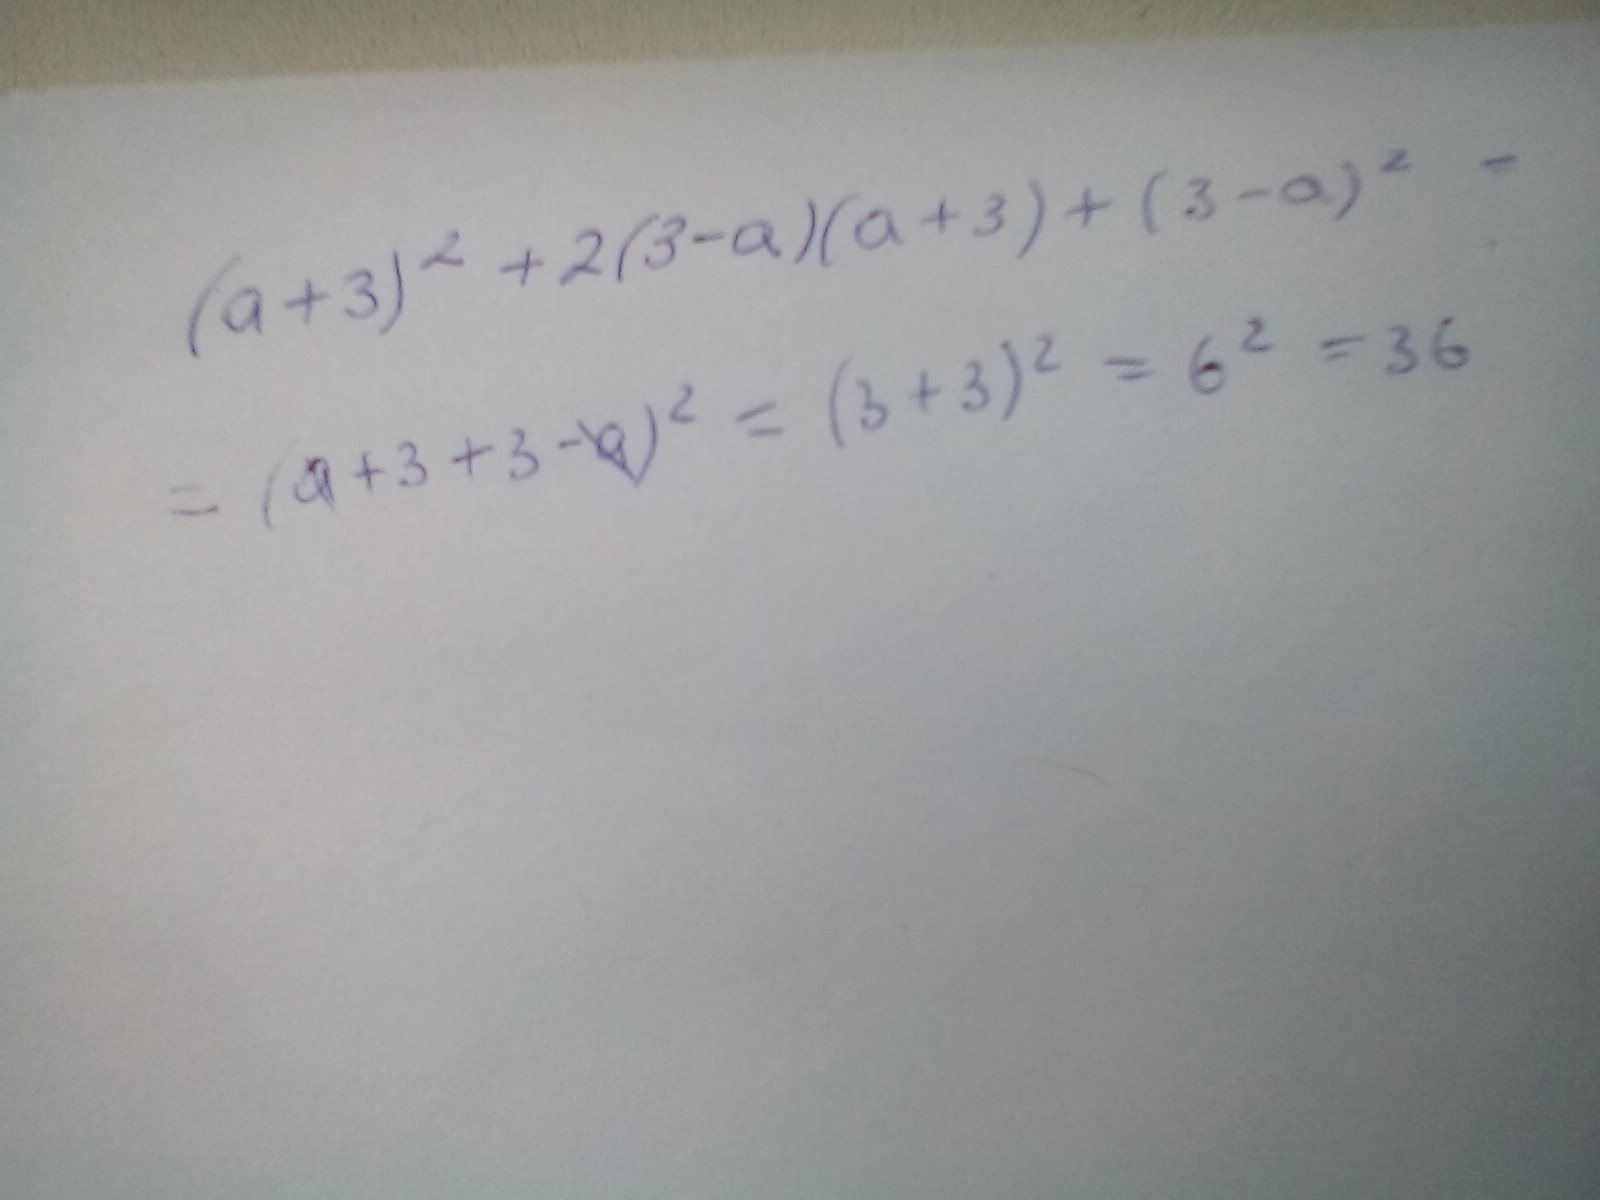 (a+3)² + 2(3-a)(a+3) + (3-a)² =
= (a+3+3-a)² = (3+3)² = 6² = 36